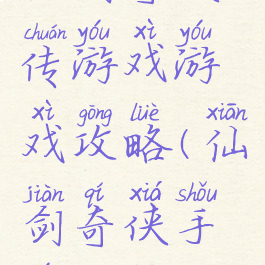 chuán yóu xì yóu
传游戏游
xì gōng lüè xiān
戏攻略(仙
jiàn qí xiá shǒu
剑奇侠手